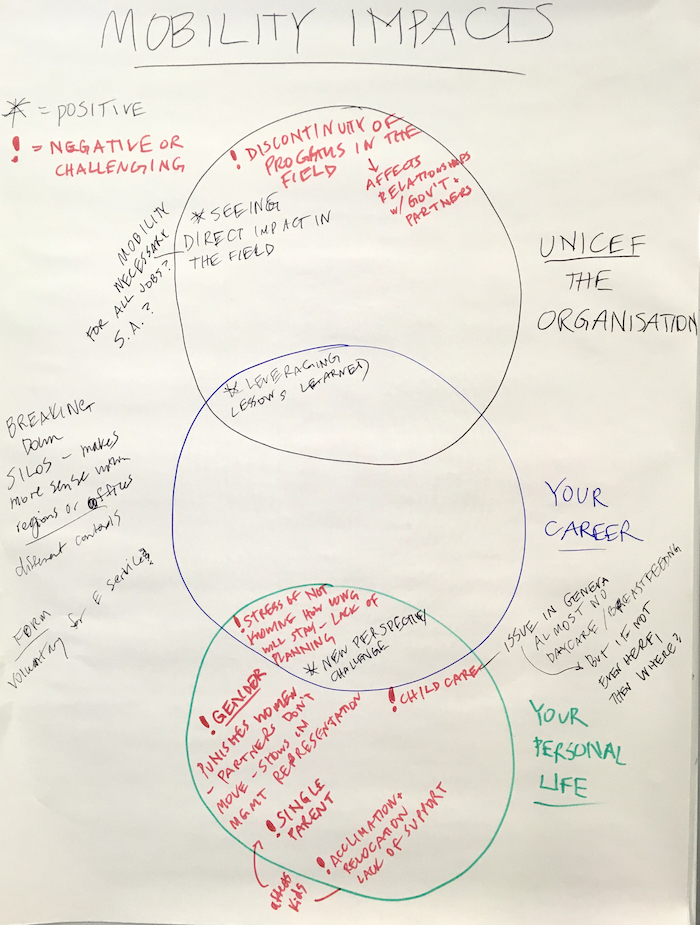 MOBILITY IMPACTS
* = POSITIVE
! = NEGATIVE OR
CHALLENGING
! DISCONTINUITY OF
PROGRAMS IN THE
FIELD
→ AFFECTS
RELATIONSHIPS
W/ GOV'T +
PARTNERS
* SEEING
DIRECT IMPACT IN
THE FIELD
MOBILITY
NECESSARY
FOR ALL JOBS?
S.A.?
UNICEF
THE
ORGANISATION
* LEVERAGING
LESSONS LEARNED
BREAKING
DOWN
SILOS - makes
more sense within
regions or offices
different contexts
YOUR
CAREER
FORM
voluntary for E services?
! STRESS OF NOT
KNOWING HOW LONG
WILL STAY - LACK OF
PLANNING
* NEW PERSPECTIVE/
CHALLENGE
! CHILD CARE
ISSUE IN GENEVA
ALMOST NO
DAYCARE/BREASTFEEDING
→ BUT IF NOT
EVEN HERE,
THEN WHERE?
! GENDER
PUNISHES WOMEN
- PARTNERS DON'T
MOVE - SHOWS IN
MGMT REPRESENTATION
YOUR
PERSONAL
LIFE
! SINGLE
PARENT
! ACCLIMATION +
RELOCATION
LACK OF SUPPORT
affects
kids